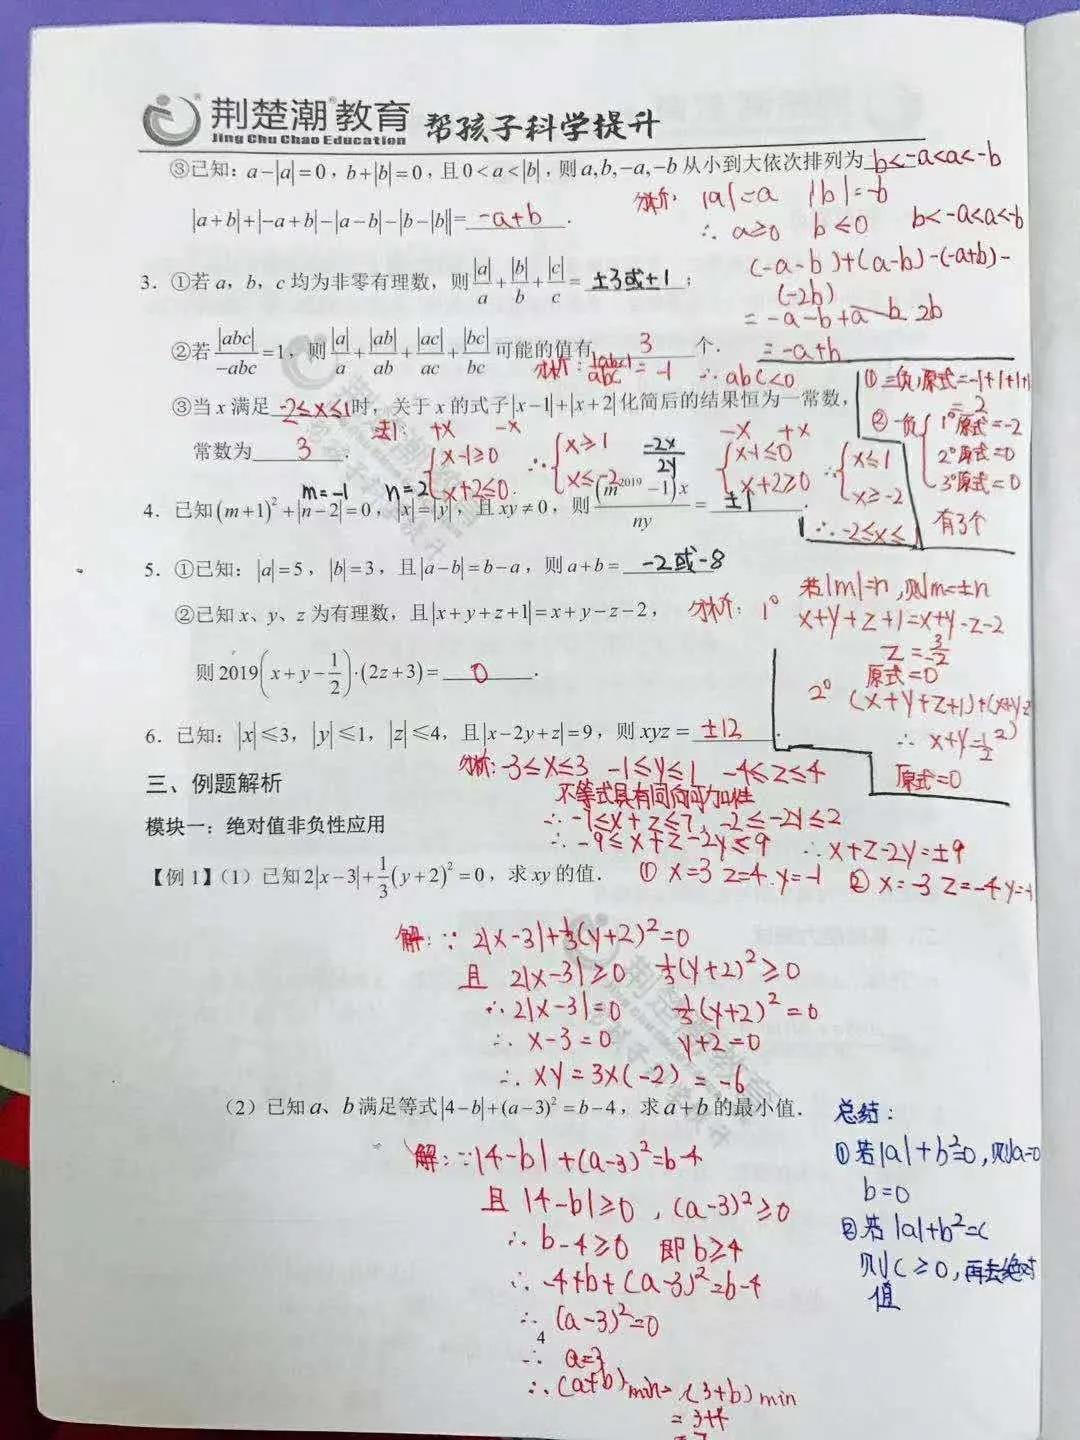 荆楚潮教育 帮孩子科学提升
Jing Chu Chao Education
③已知：a-|a|=0，b+|b|=0，且0<a<|b|，则a,b,-a,-b从小到大依次排列为 b<-a<a<-b
分析：|a|=a |b|=-b
∴ a≥0 b≤0 b<-a<a<-b
|a+b|+|-a+b|-|a-b|-|b-|b||= -a+b .
(-a-b)+(a-b)-(-a+b)-
(-2b)
=-a-b+a
=-a+b
3．①若a，b，c均为非零有理数，则|a|/a+|b|/b+|c|/c= ±3或±1；
②若|abc|/-abc=1，则|a|/a+|ab|/ab+|ac|/ac+|bc|/bc可能的值有 3 个．
分析：|abc|/abc=-1 ∴abc<0
①三负，原式=-1+1+1+1
=2
②一负 1°原式=-2
2°原式=0
3°原式=0
有3个
③当x满足 -2≤x≤1 时，关于x的式子|x-1|+|x+2|化简后的结果恒为一常数，
常数为 3 ．
法1： +x -x
{x-1≥0 x+2≤0 ∴{x≥1 x≤-2
-x +x
{x-1≤0 x+2≥0 ∴{x≤1 x≥-2
∴-2≤x≤1
m=-1 n=2
-2x/2y
4．已知(m+1)²+|n-2|=0，|x|=|y|，且xy≠0，则(m²⁰¹⁹-1)x/ny= ±1 .
5．①已知：|a|=5，|b|=3，且|a-b|=b-a，则a+b= -2或-8
②已知x、y、z为有理数，且|x+y+z+1|=x+y-z-2，
则2019(x+y-1/2)·(2z+3)= 0 .
分析： 若|m|=n，则m=±n
1° x+y+z+1=x+y-z-2
z=-3/2
原式=0
2° (x+y+z+1)+(x+y-z
∴ x+y=1/2
原式=0
6．已知：|x|≤3，|y|≤1，|z|≤4，且|x-2y+z|=9，则xyz= ±12 .
分析：-3≤x≤3 -1≤y≤1 -4≤z≤4
不等式具有同向可加性
∴ -7≤x+z≤7，-2≤-2y≤2
∴ -9≤x+z-2y≤9 ∴x+z-2y=±9
① x=3 z=4 y=-1 ② x=-3 z=-4 y=
三、例题解析
模块一：绝对值非负性应用
【例1】（1）已知2|x-3|+1/3(y+2)²=0，求xy的值．
解：∵ 2|x-3|+1/3(y+2)²=0
且 2|x-3|≥0 1/3(y+2)²≥0
∴2|x-3|=0 1/3(y+2)²=0
∴ x-3=0 y+2=0
∴ xy=3×(-2)=-6
（2）已知a、b满足等式|4-b|+(a-3)²=b-4，求a+b的最小值．
解：∵|4-b|+(a-3)²=b-4
且 |4-b|≥0，(a-3)²≥0
∴ b-4≥0 即b≥4
∴ -4+b+(a-3)²=b-4
∴ (a-3)²=0
∴ a=3
∴(a+b)min=(3+b)min
=3+4
=7
总结：
①若|a|+b²=0，则a=0
b=0
②若|a|+b²=c
则c≥0，再去绝对
值
4